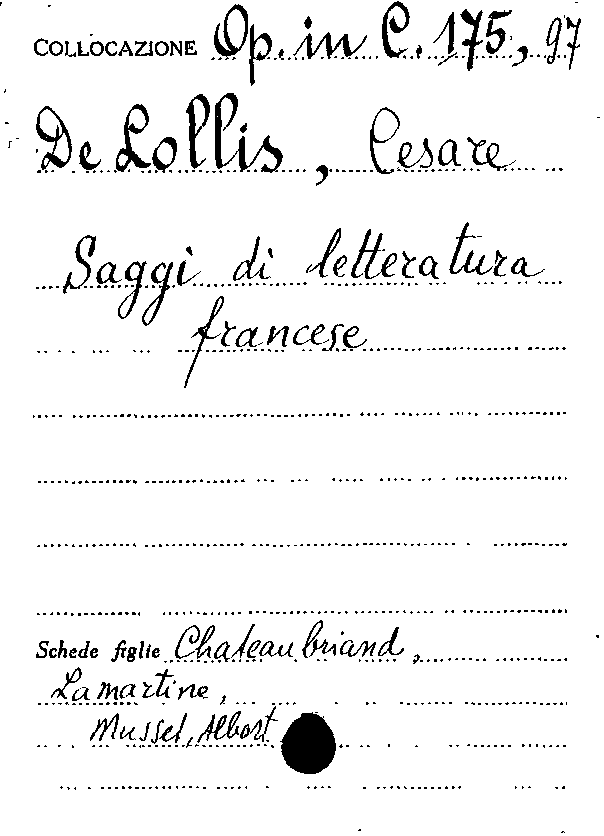 COLLOCAZIONE Op. in C. 175, 97
De Lollis, Cesare
Saggi di letteratura
francese
Schede figlie Chateaubriand,
Lamartine,
Musset, Albert